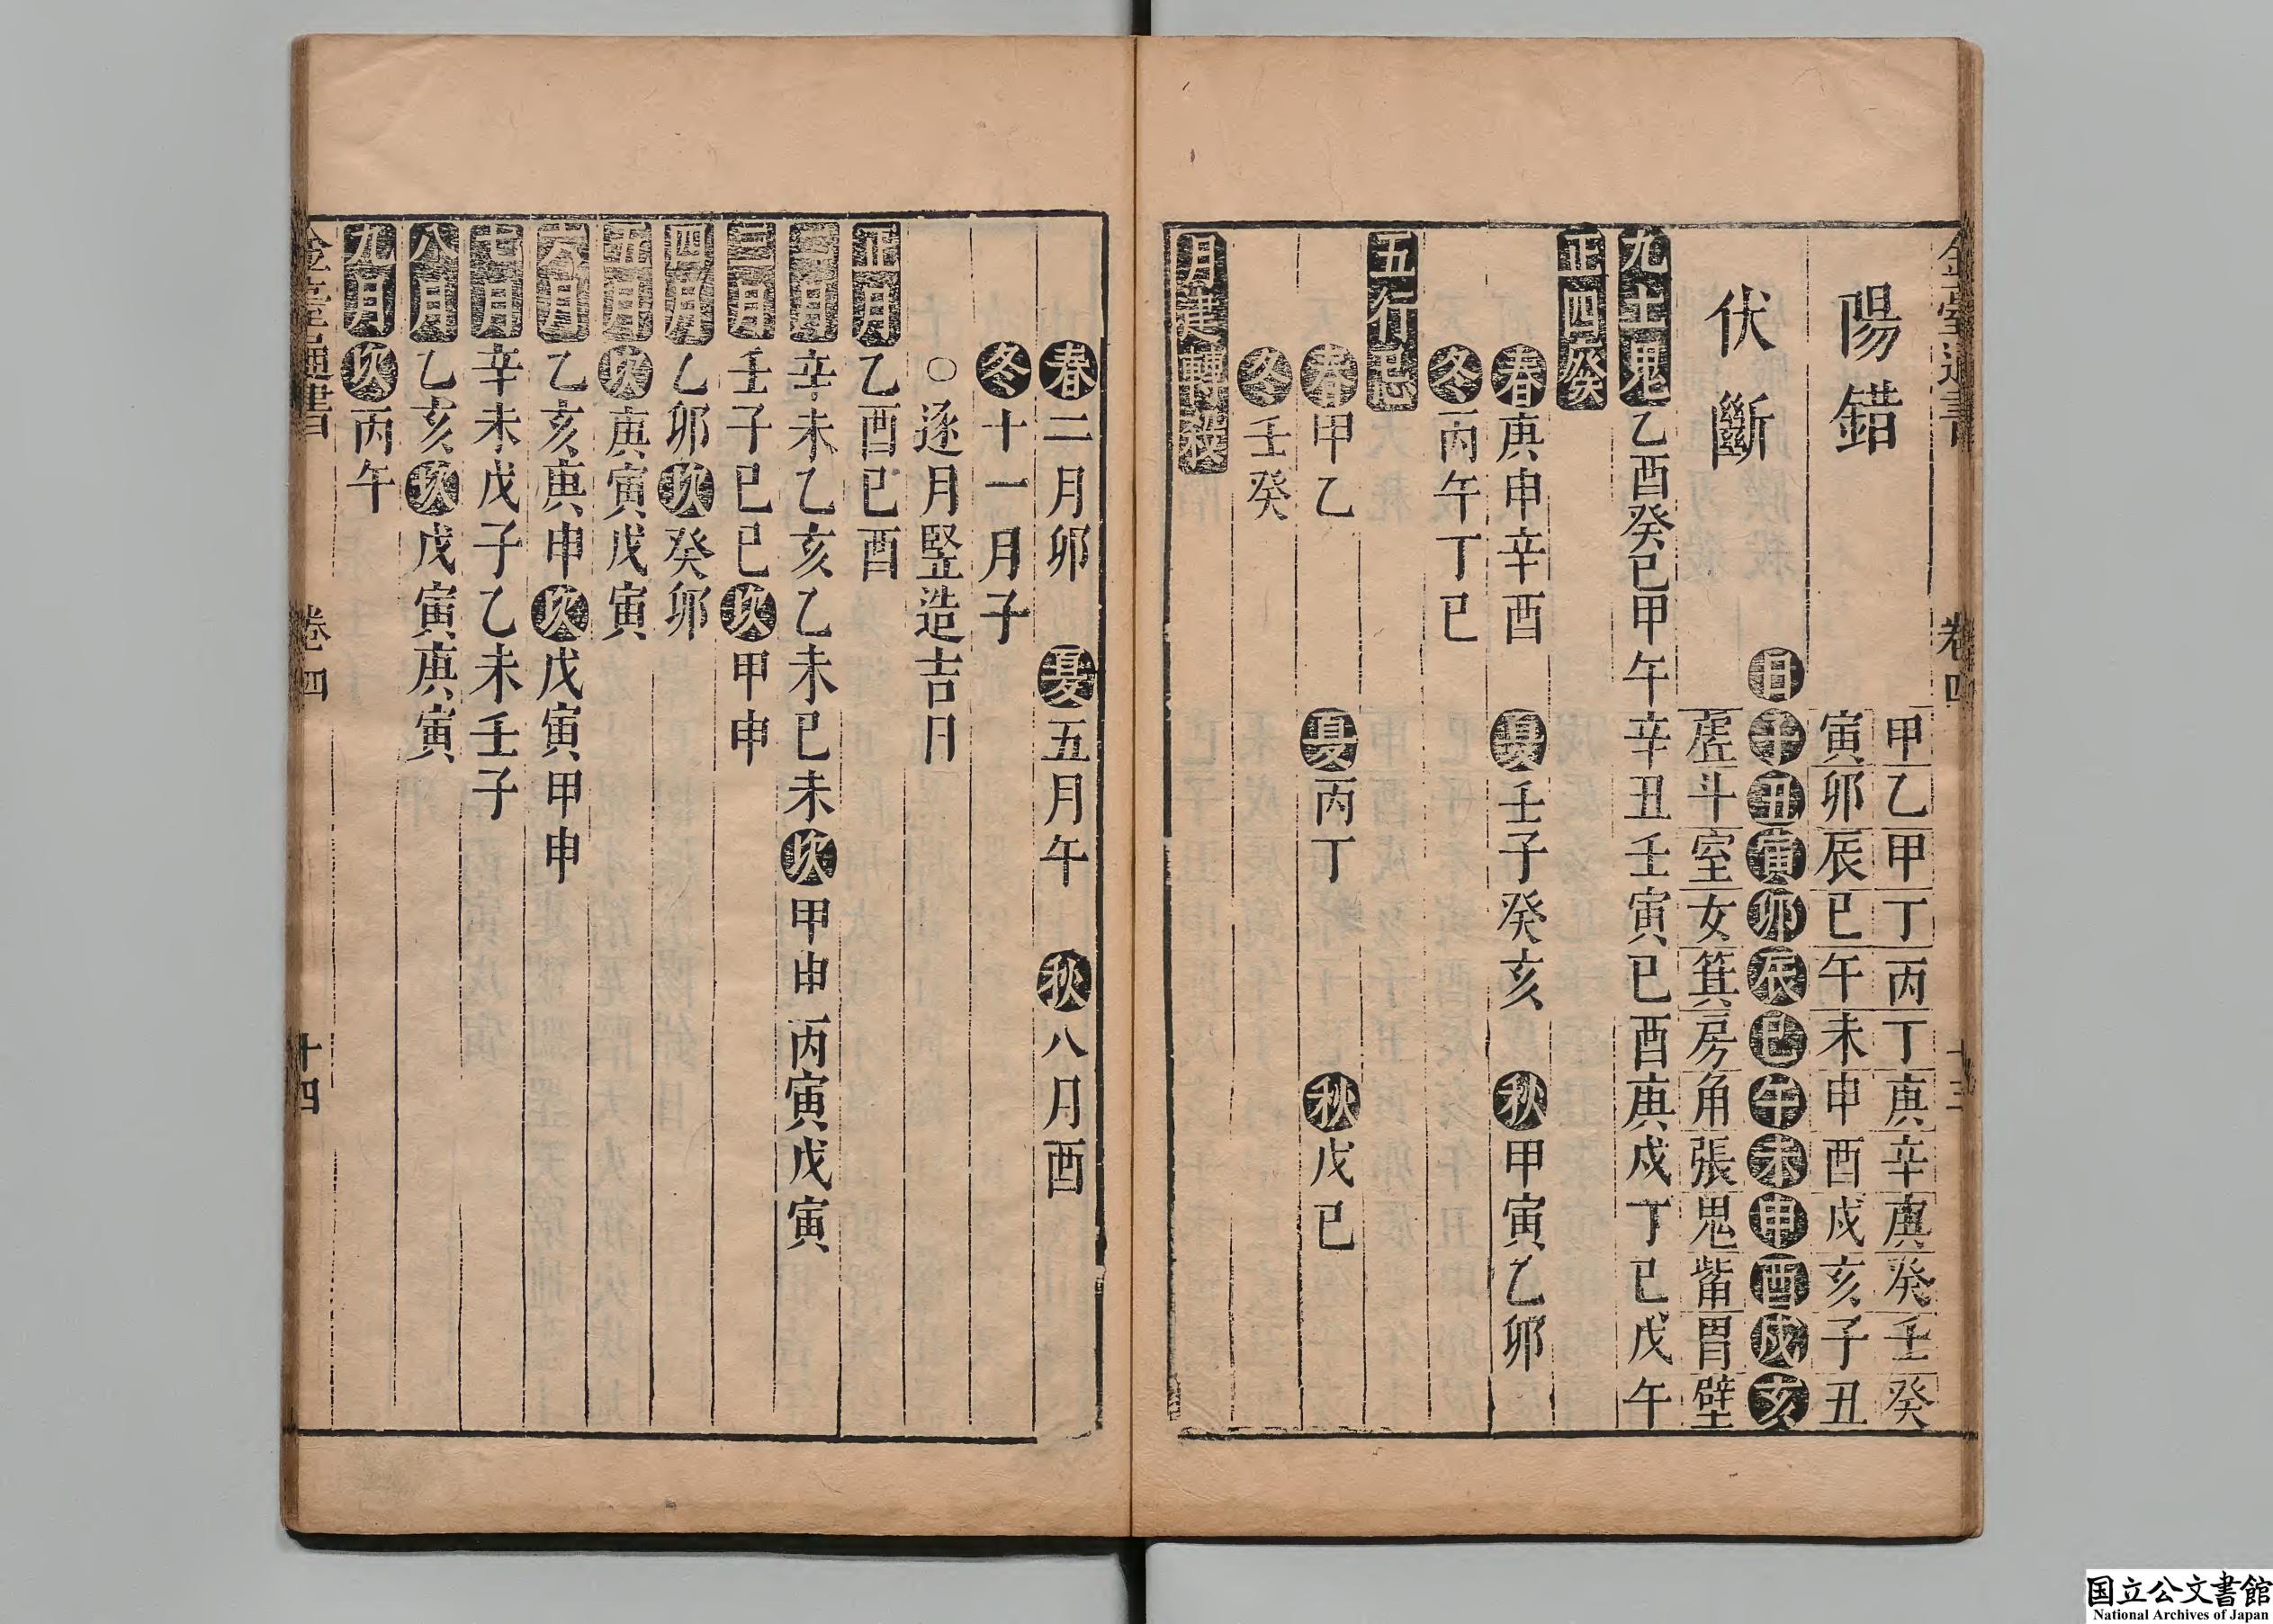 金臺通書 卷四
陽錯
甲乙甲丁丙丁庚辛庚癸壬癸
寅卯辰巳午未申酉戌亥子丑
伏斷
日子丑寅卯辰巳午未申酉戌亥
虛斗室女箕房角張鬼觜胃壁
九土鬼乙酉癸巳甲午辛丑壬寅己酉庚戌丁巳戊午
正四癈
春庚申辛酉 夏壬子癸亥 秋甲寅乙卯
冬丙午丁巳
五行忌
春甲乙 夏丙丁 秋戊己
冬壬癸
月建轉殺
春二月卯 夏五月午 秋八月酉
冬十一月子
○逐月竪造吉日
正月乙酉己酉
二月辛未乙亥乙未己未次甲申丙寅戊寅
三月壬子己巳次甲申
四月乙卯次癸卯
五月次庚寅戊寅
六月乙亥庚申次戊寅甲申
七月辛未戊子乙未壬子
八月乙亥次戊寅庚寅
九月次丙午
金臺通書 卷四 十四
国立公文書館
National Archives of Japan